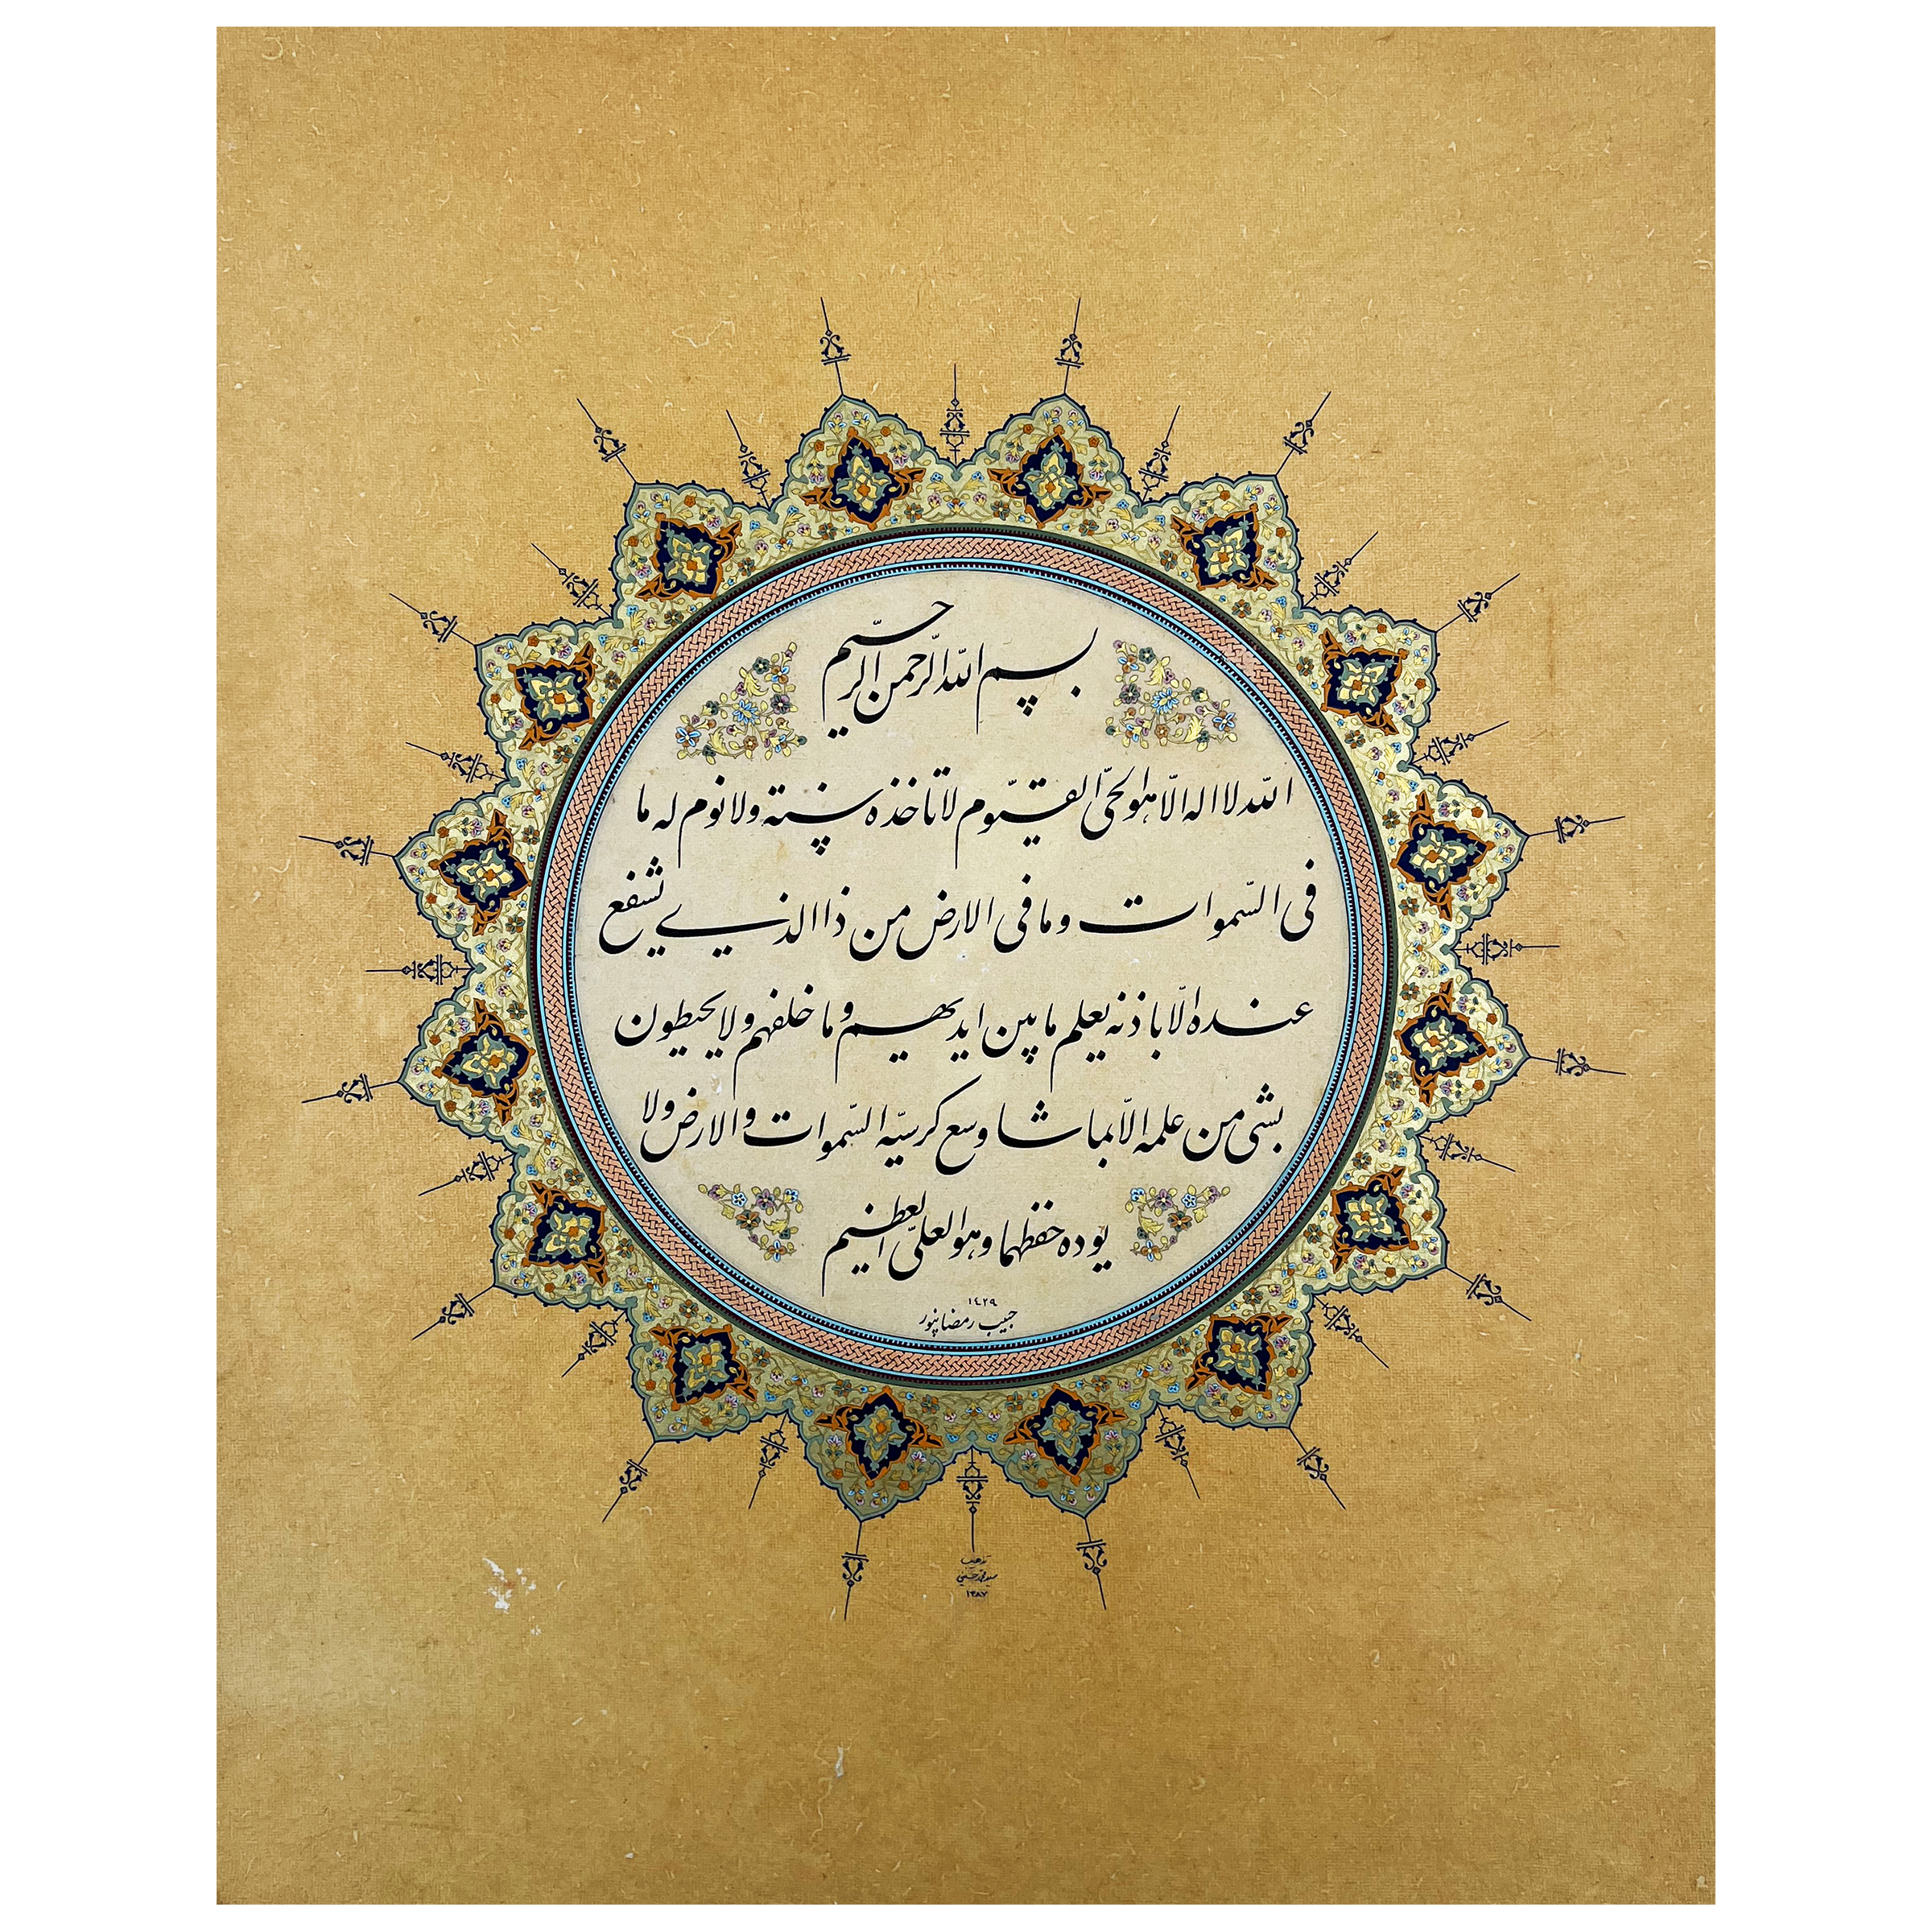 بسم الله الرحمن الرحیم
الله لا اله الّا هو الحیّ القیّوم لا تاخذه سنته ولا نوم له ما
فی السّموات وما فی الارض من ذاالذی یشفع
عنده الّا باذنه یعلم ما بین ایدیهم وما خلفهم ولا یحیطون
بشیٔ من علمه الّا بما شا وسع کرسیّه السّموات والارض ولا
یوده حفظهما وهو العلیّ العظیم
۱٤۲۹
حبیب رمضانپور
تذهیب
سید محمد حسینی
۱۳۸۷